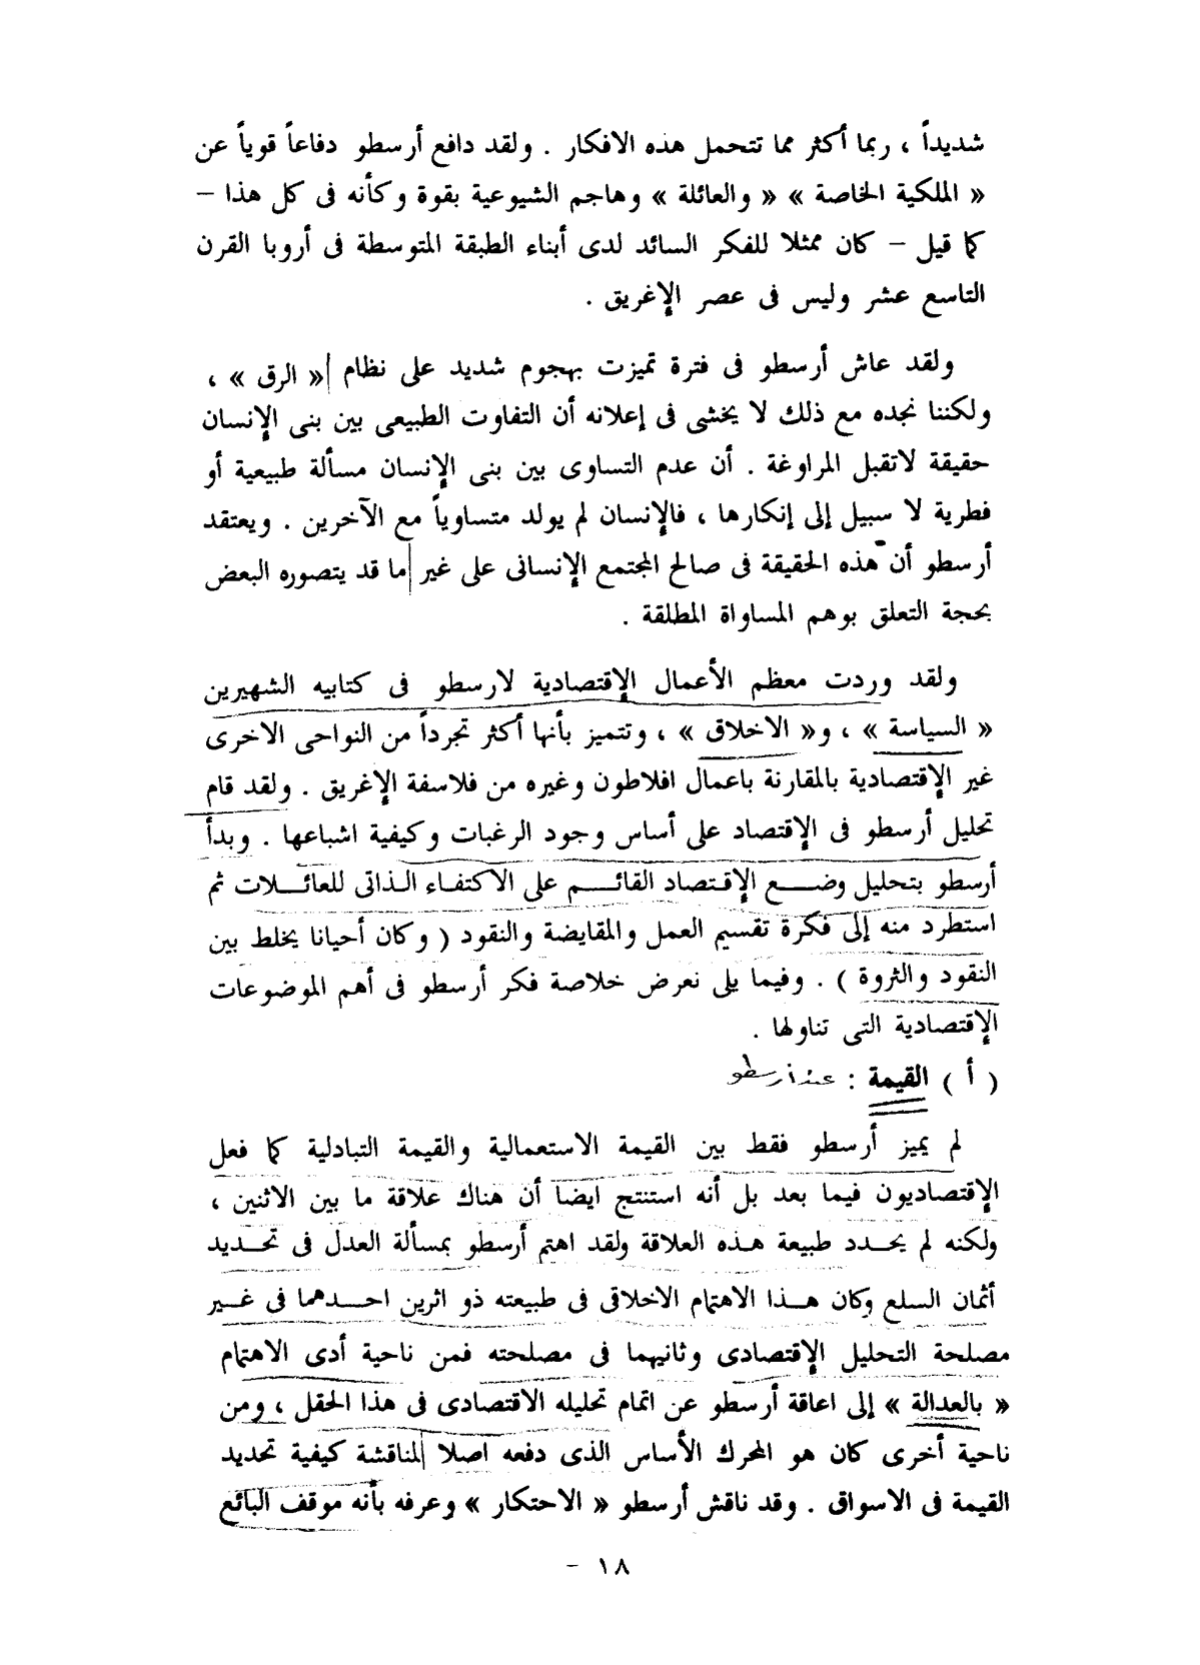 شديداً ، ربما أكثر مما تتحمل هذه الافكار . ولقد دافع أرسطو دفاعاً قوياً عن
« الملكية الخاصة » « والعائلة » وهاجم الشيوعية بقوة وكأنه فى كل هذا –
كما قيل – كان ممثلا للفكر السائد لدى أبناء الطبقة المتوسطة فى أروبا القرن
التاسع عشر وليس فى عصر الإغريق .
ولقد عاش أرسطو فى فترة تميزت بهجوم شديد على نظام « الرق » ،
ولكننا نجده مع ذلك لا يخشى فى إعلانه أن التفاوت الطبيعى بين بنى الإنسان
حقيقة لاتقبل المراوغة . أن عدم التساوى بين بنى الإنسان مسألة طبيعية أو
فطرية لا سبيل إلى إنكارها ، فالإنسان لم يولد متساوياً مع الآخرين . ويعتقد
أرسطو أن هذه الحقيقة فى صالح المجتمع الإنسانى على غير ما قد يتصوره البعض
بحجة التعلق بوهم المساواة المطلقة .
ولقد وردت معظم الأعمال الإقتصادية لارسطو فى كتابيه الشهيرين
« السياسة » ، و« الاخلاق » ، وتتميز بأنها أكثر تجرداً من النواحى الاخرى
غير الإقتصادية بالمقارنة باعمال افلاطون وغيره من فلاسفة الإغريق . ولقد قام
تحليل أرسطو فى الإقتصاد على أساس وجود الرغبات وكيفية اشباعها . وبدأ
أرسطو بتحليل وضع الإقتصاد القائم على الاكتفاء الذاتى للعائلات ثم
استطرد منه إلى فكرة تقسيم العمل والمقايضة والنقود ( وكان أحيانا يخلط بين
النقود والثروة ) . وفيما يلى نعرض خلاصة فكر أرسطو فى أهم الموضوعات
الإقتصادية التى تناولها .
( أ ) القيمة : عند أرسطو
لم يميز أرسطو فقط بين القيمة الاستعمالية والقيمة التبادلية كما فعل
الإقتصاديون فيما بعد بل أنه استنتج ايضا أن هناك علاقة ما بين الاثنين ،
ولكنه لم يحدد طبيعة هذه العلاقة ولقد اهتم أرسطو بمسألة العدل فى تحديد
أثمان السلع وكان هذا الاهتمام الاخلاقى فى طبيعته ذو اثرين احدهما فى غير
مصلحة التحليل الإقتصادى وثانيهما فى مصلحته فمن ناحية أدى الاهتمام
« بالعدالة » إلى اعاقة أرسطو عن اتمام تحليله الاقتصادى فى هذا الحقل ، ومن
ناحية أخرى كان هو المحرك الأساس الذى دفعه اصلا لمناقشة كيفية تحديد
القيمة فى الاسواق . وقد ناقش أرسطو « الاحتكار » وعرفه بأنه موقف البائع
١٨ -